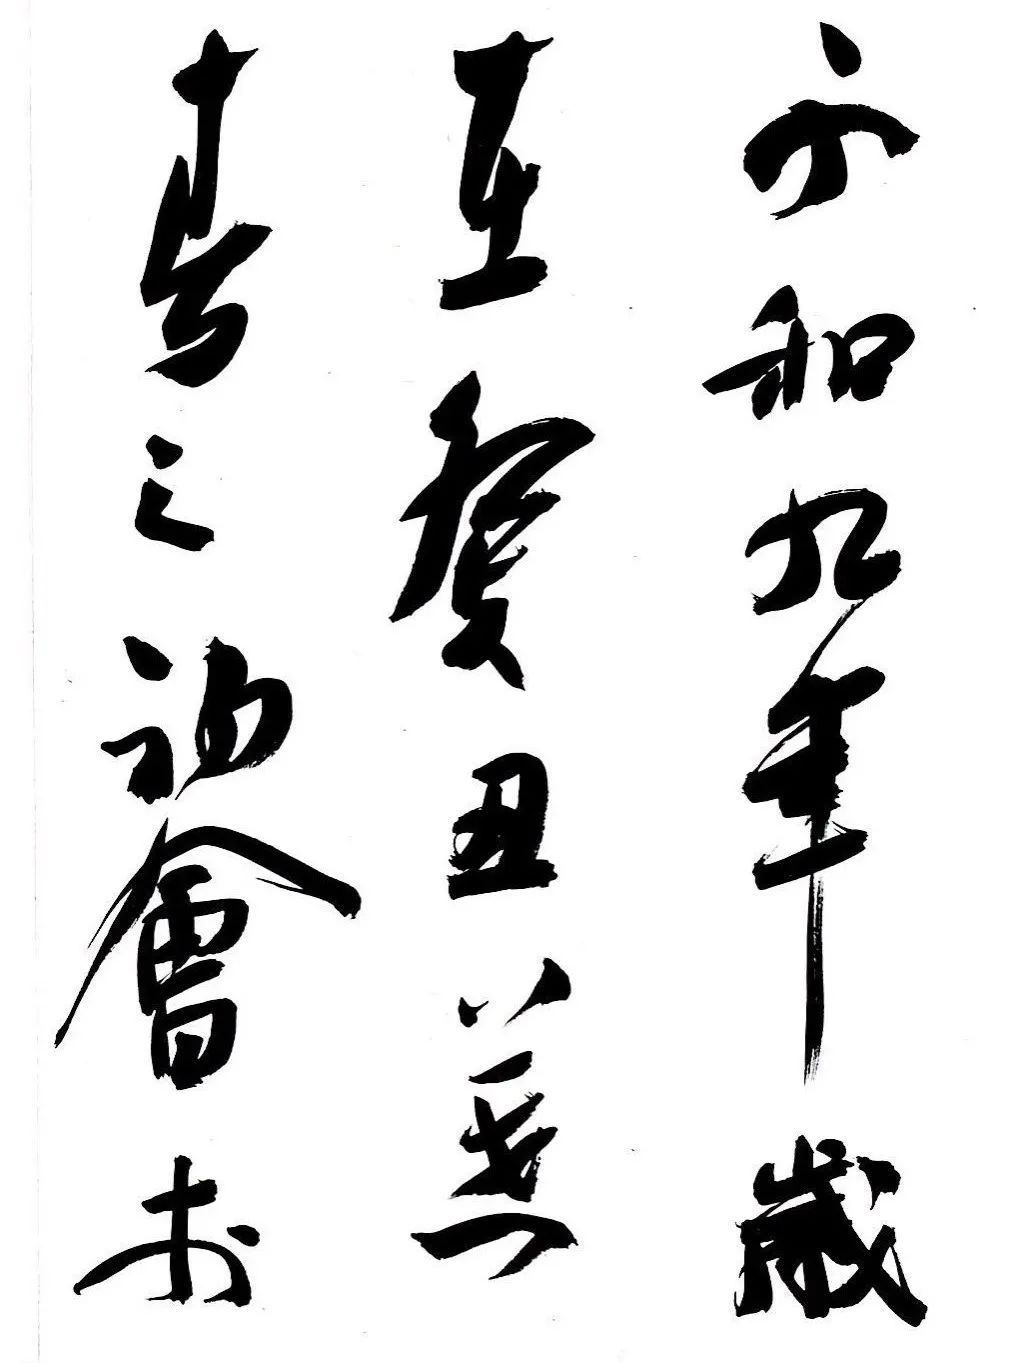 永和九年歲
在癸丑暮
春之初會於